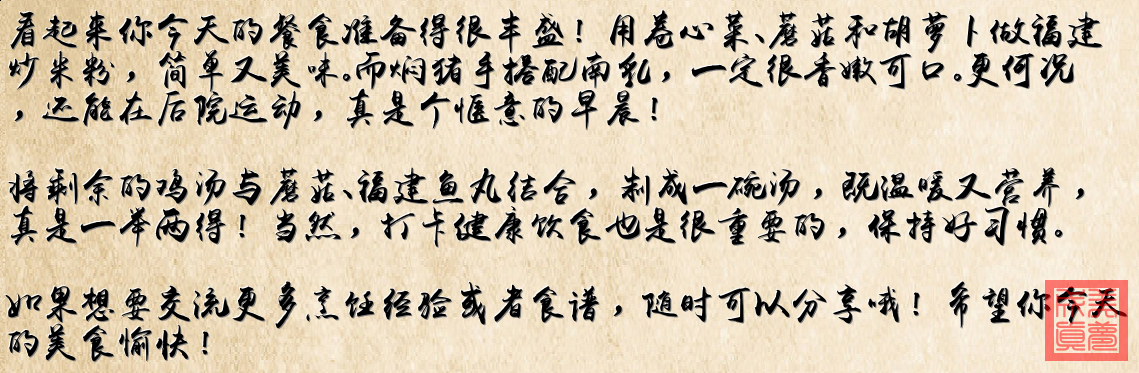 看起来你今天的餐食准备得很丰盛！用卷心菜、蘑菇和胡萝卜做福建
炒米粉，简单又美味。而焖猪手搭配南乳，一定很香嫩可口。更何况
，还能在后院运动，真是个惬意的早晨！
将剩余的鸡汤与蘑菇、福建鱼丸结合，制成一碗汤，既温暖又营养，
真是一举两得！当然，打卡健康饮食也是很重要的，保持好习惯。
如果想要交流更多烹饪经验或者食谱，随时可以分享哦！希望你今天
的美食愉快！